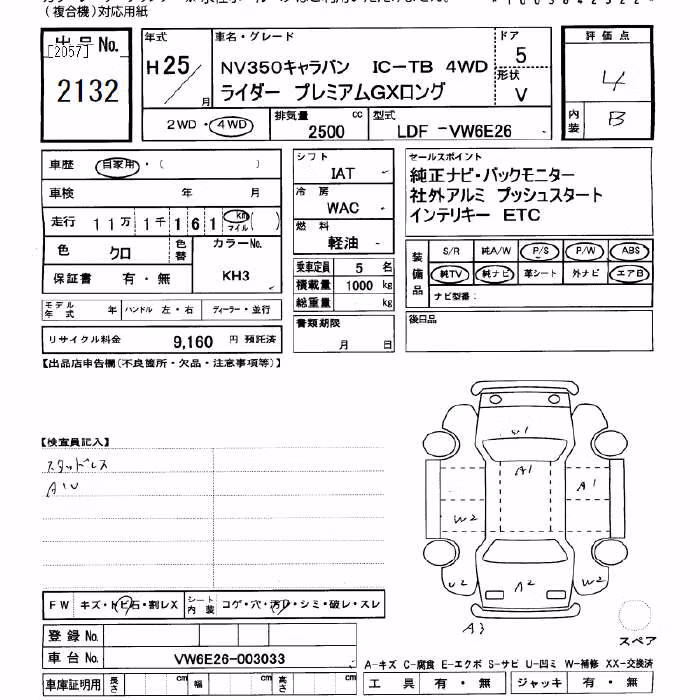 (複合機)対応用紙
出品No. [2057] 2132
年式 H25/ 月
車名・グレード NV350キャラバン IC-TB 4WD
ライダー プレミアムGXロング
ドア 5
形状 V
2WD・4WD 排気量 2500 cc 型式 LDF-VW6E26
評価点 4
内装 B
車歴 自家用・( )
車検 年 月
走行 11万1千161 km マイル( )
色 クロ 色替 カラーNo. KH3
保証書 有・無
モデル年式 年 ハンドル 左・右 ディーラー・並行
リサイクル料金 9,160 円 預託済
シフト IAT
冷房 WAC
燃料 軽油
乗車定員 5 名
積載量 1000 kg
総重量 kg
書類期限 月 日
セールスポイント
純正ナビ・バックモニター
社外アルミ プッシュスタート
インテリキー ETC
装備品 S/R 純A/W P/S P/W ABS
純TV 純ナビ 革シート 外ナビ エアB
ナビ型番:
後日品
【出品店申告欄(不良箇所・欠品・注意事項等)】
【検査員記入】
スタッドレス
A1U
U1
A1
A1
W2
U2
A2
W2
A3
スペア
FW キズ・トビ石・割レX シート内装 コゲ・穴・汚レ・シミ・破レ・スレ
登録No.
車台No. VW6E26-003033
車庫証明用 長さ cm 幅 cm 高さ cm
A-キズ C-腐食 E-エクボ S-サビ U-凹ミ W-補修 XX-交換済
工具 有・無 ジャッキ 有・無